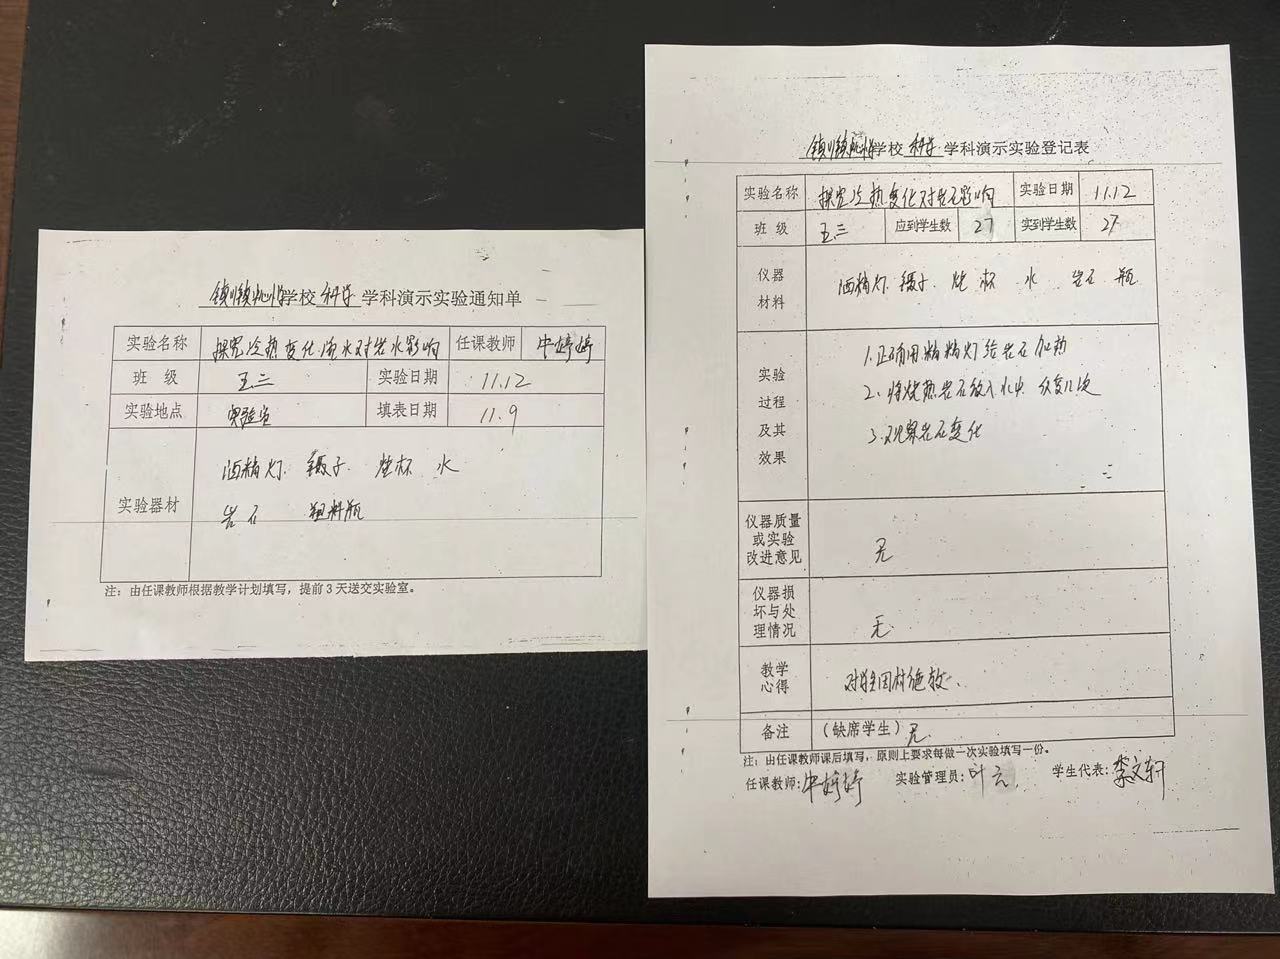 学校科学学科演示实验通知单
实验名称 探究冷热变化、流水对岩水影响 任课教师 申婷婷
班 级 五.二 实验日期 11.12
实验地点 实验室 填表日期 11.9
实验器材
酒精灯、镊子、烧杯 水
岩石 塑料瓶
注：由任课教师根据教学计划填写，提前3天送交实验室。
学校科学学科演示实验登记表
实验名称 探究冷热变化对岩石影响 实验日期 11.12
班 级 五.二 应到学生数 27 实到学生数 27
仪器
材料
酒精灯、镊子、烧杯 水 岩石 瓶
实验
过程
及其
效果
1.正确用精精灯给岩石加热
2.将烧热岩石放入水中 反复几次
3.观察岩石变化
仪器质量
或实验
改进意见
无
仪器损
坏与处
理情况
无.
教学
心得
备注 （缺席学生）无.
注：由任课教师课后填写，原则上要求每做一次实验填写一份。
任课教师：申婷婷 实验管理员：叶云 学生代表：李文轩